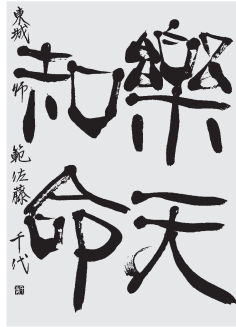 樂天
知命
東城師範佐藤千代